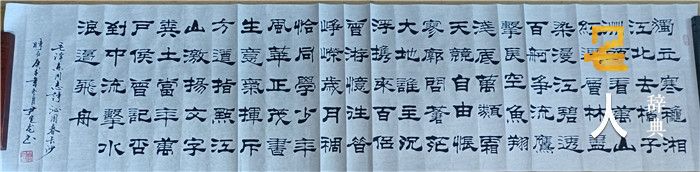 獨立寒穐湘
江北去橘子
洲頭看萬山
紅遍層林盡
染漫江碧透
百舸爭流鷹
擊長空魚翔
淺底萬類霜
天競自由悵
寥廓問蒼茫
大地誰主沉
浮攜來百侶
曾游憶往昔
崢嶸歲月稠
恰同學少年
風華正茂書
生意氣揮斥
方遒指點江
山激揚文字
糞土當年萬
戶侯曾記否
到中流擊水
浪遏飛舟
毛澤東同志詩沁園春長沙
時在庚子年冬月
名人
辞典